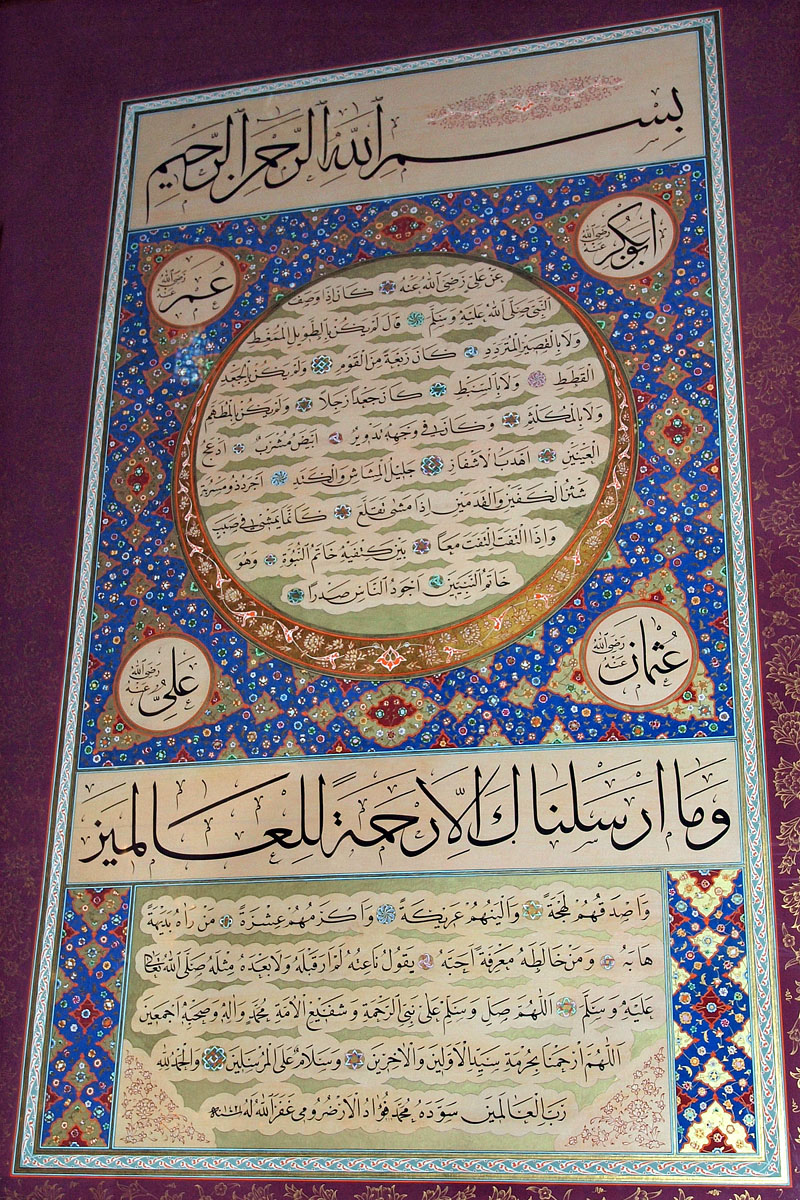 بِسْمِ اللّٰهِ الرَّحْمٰنِ الرَّحِيمِ
ابوبكر رَضِيَ اللّٰه عَنْهُ
عُمر رَضِيَ اللّٰه عَنْهُ
عَن عَلِى رَضِىَ اللّٰهُ عَنْهُ كَانَ اِذَا وَصَفَ
النَّبِىَّ صَلَّى اللّٰهُ عَلَيْهِ وَسَلَّمَ قَالَ لَمْ يَكُنْ بِالطَّوِيلِ الْمُمَّغِطِ
وَلَا بِالْقَصِيرِ الْمُتَرَدِّدِ كَانَ رَبْعَةً مِنَ الْقَوْمِ وَلَمْ يَكُنْ بِالْجَعْدِ
الْقَطَطِ وَلَا بِالسَّبِطِ كَانَ جَعْدًا رَجِلًا وَلَمْ يَكُنْ بِالْمُطَهَّمِ
وَلَا بِالْمُكَلْثَمِ وَكَانَ فِى وَجْهِهِ تَدْوِيرٌ اَبْيَضُ مُشْرَبٌ اَدْعَجُ
الْعَيْنَيْنِ اَهْدَبُ الْاَشْفَارِ جَلِيلُ الْمُشَاشِ وَالْكَتَدِ اَجْرَدُ ذُو مَسْرُبَةٍ
شَثْنُ الْكَفَّيْنِ وَالْقَدَمَيْنِ اِذَا مَشٰى تَقَلَّعَ كَاَنَّمَا يَمْشِى فِى صَبَبٍ
وَاِذَا الْتَفَتَ الْتَفَتَ مَعًا بَيْنَ كَتِفَيْهِ خَاتَمُ النُّبُوَّةِ وَهُوَ
خَاتَمُ النَّبِيِّينَ اَجْوَدُ النَّاسِ صَدْرًا
عُثْمَان رَضِيَ اللّٰه عَنْهُ
عَلِىّ رَضِيَ اللّٰه عَنْهُ
وَمَا اَرْسَلْنَاكَ اِلَّا رَحْمَةً لِلْعَالَمِينَ
وَاَصْدَقُهُمْ لَهْجَةً وَاَلْيَنُهُمْ عَرِيكَةً وَاَكْرَمُهُمْ عِشْرَةً مَنْ رَاٰهُ بَدِيهَةً
هَابَهُ وَمَنْ خَالَطَهُ مَعْرِفَةً اَحَبَّهُ يَقُولُ نَاعِتُهُ لَمْ اَرَ قَبْلَهُ وَلَا بَعْدَهُ مِثْلَهُ صَلَّى اللّٰهُ تَعَالٰى
عَلَيْهِ وَسَلَّمَ اَللّٰهُمَّ صَلِّ وَسَلِّمْ عَلٰى نَبِىِّ الرَّحْمَةِ وَشَفِيعِ الْاُمَّةِ مُحَمَّدٍ وَاٰلِهِ وَصَحْبِهِ اَجْمَعِينَ
اَللّٰهُمَّ ارْحَمْنَا بِحُرْمَةِ سَيِّدِ الْاَوَّلِينَ وَالْاٰخِرِينَ وَسَلَامٌ عَلَى الْمُرْسَلِينَ وَالْحَمْدُ لِلّٰهِ
رَبِّ الْعَالَمِينَ سَوَّدَهُ مُحَمَّد فُؤَاد الْاَرْضُرُومِى غَفَرَ اللّٰهُ لَهُ